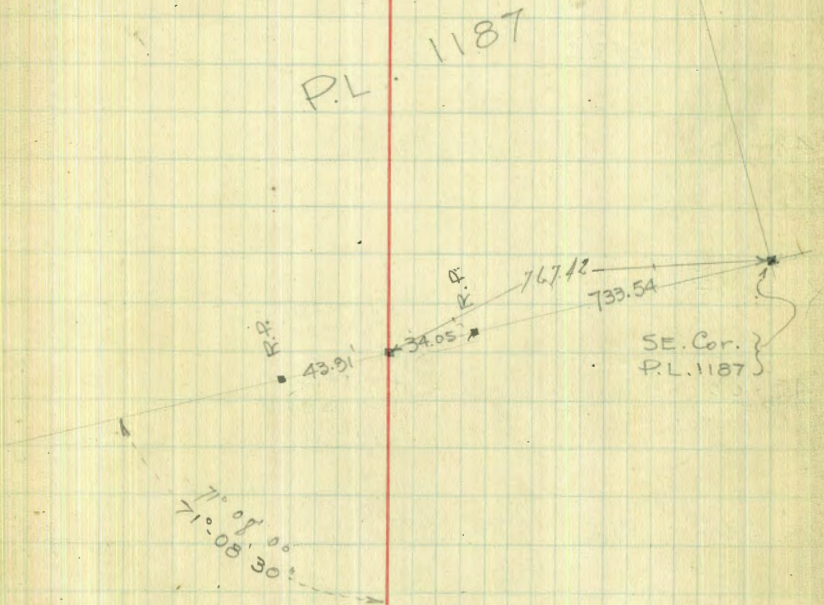 P.L. 1187
R.P.
767.42
733.54
R.P.
34.05'
43.91'
SE. Cor.
P.L. 1187
71° 08' 00
71° 08' 30"